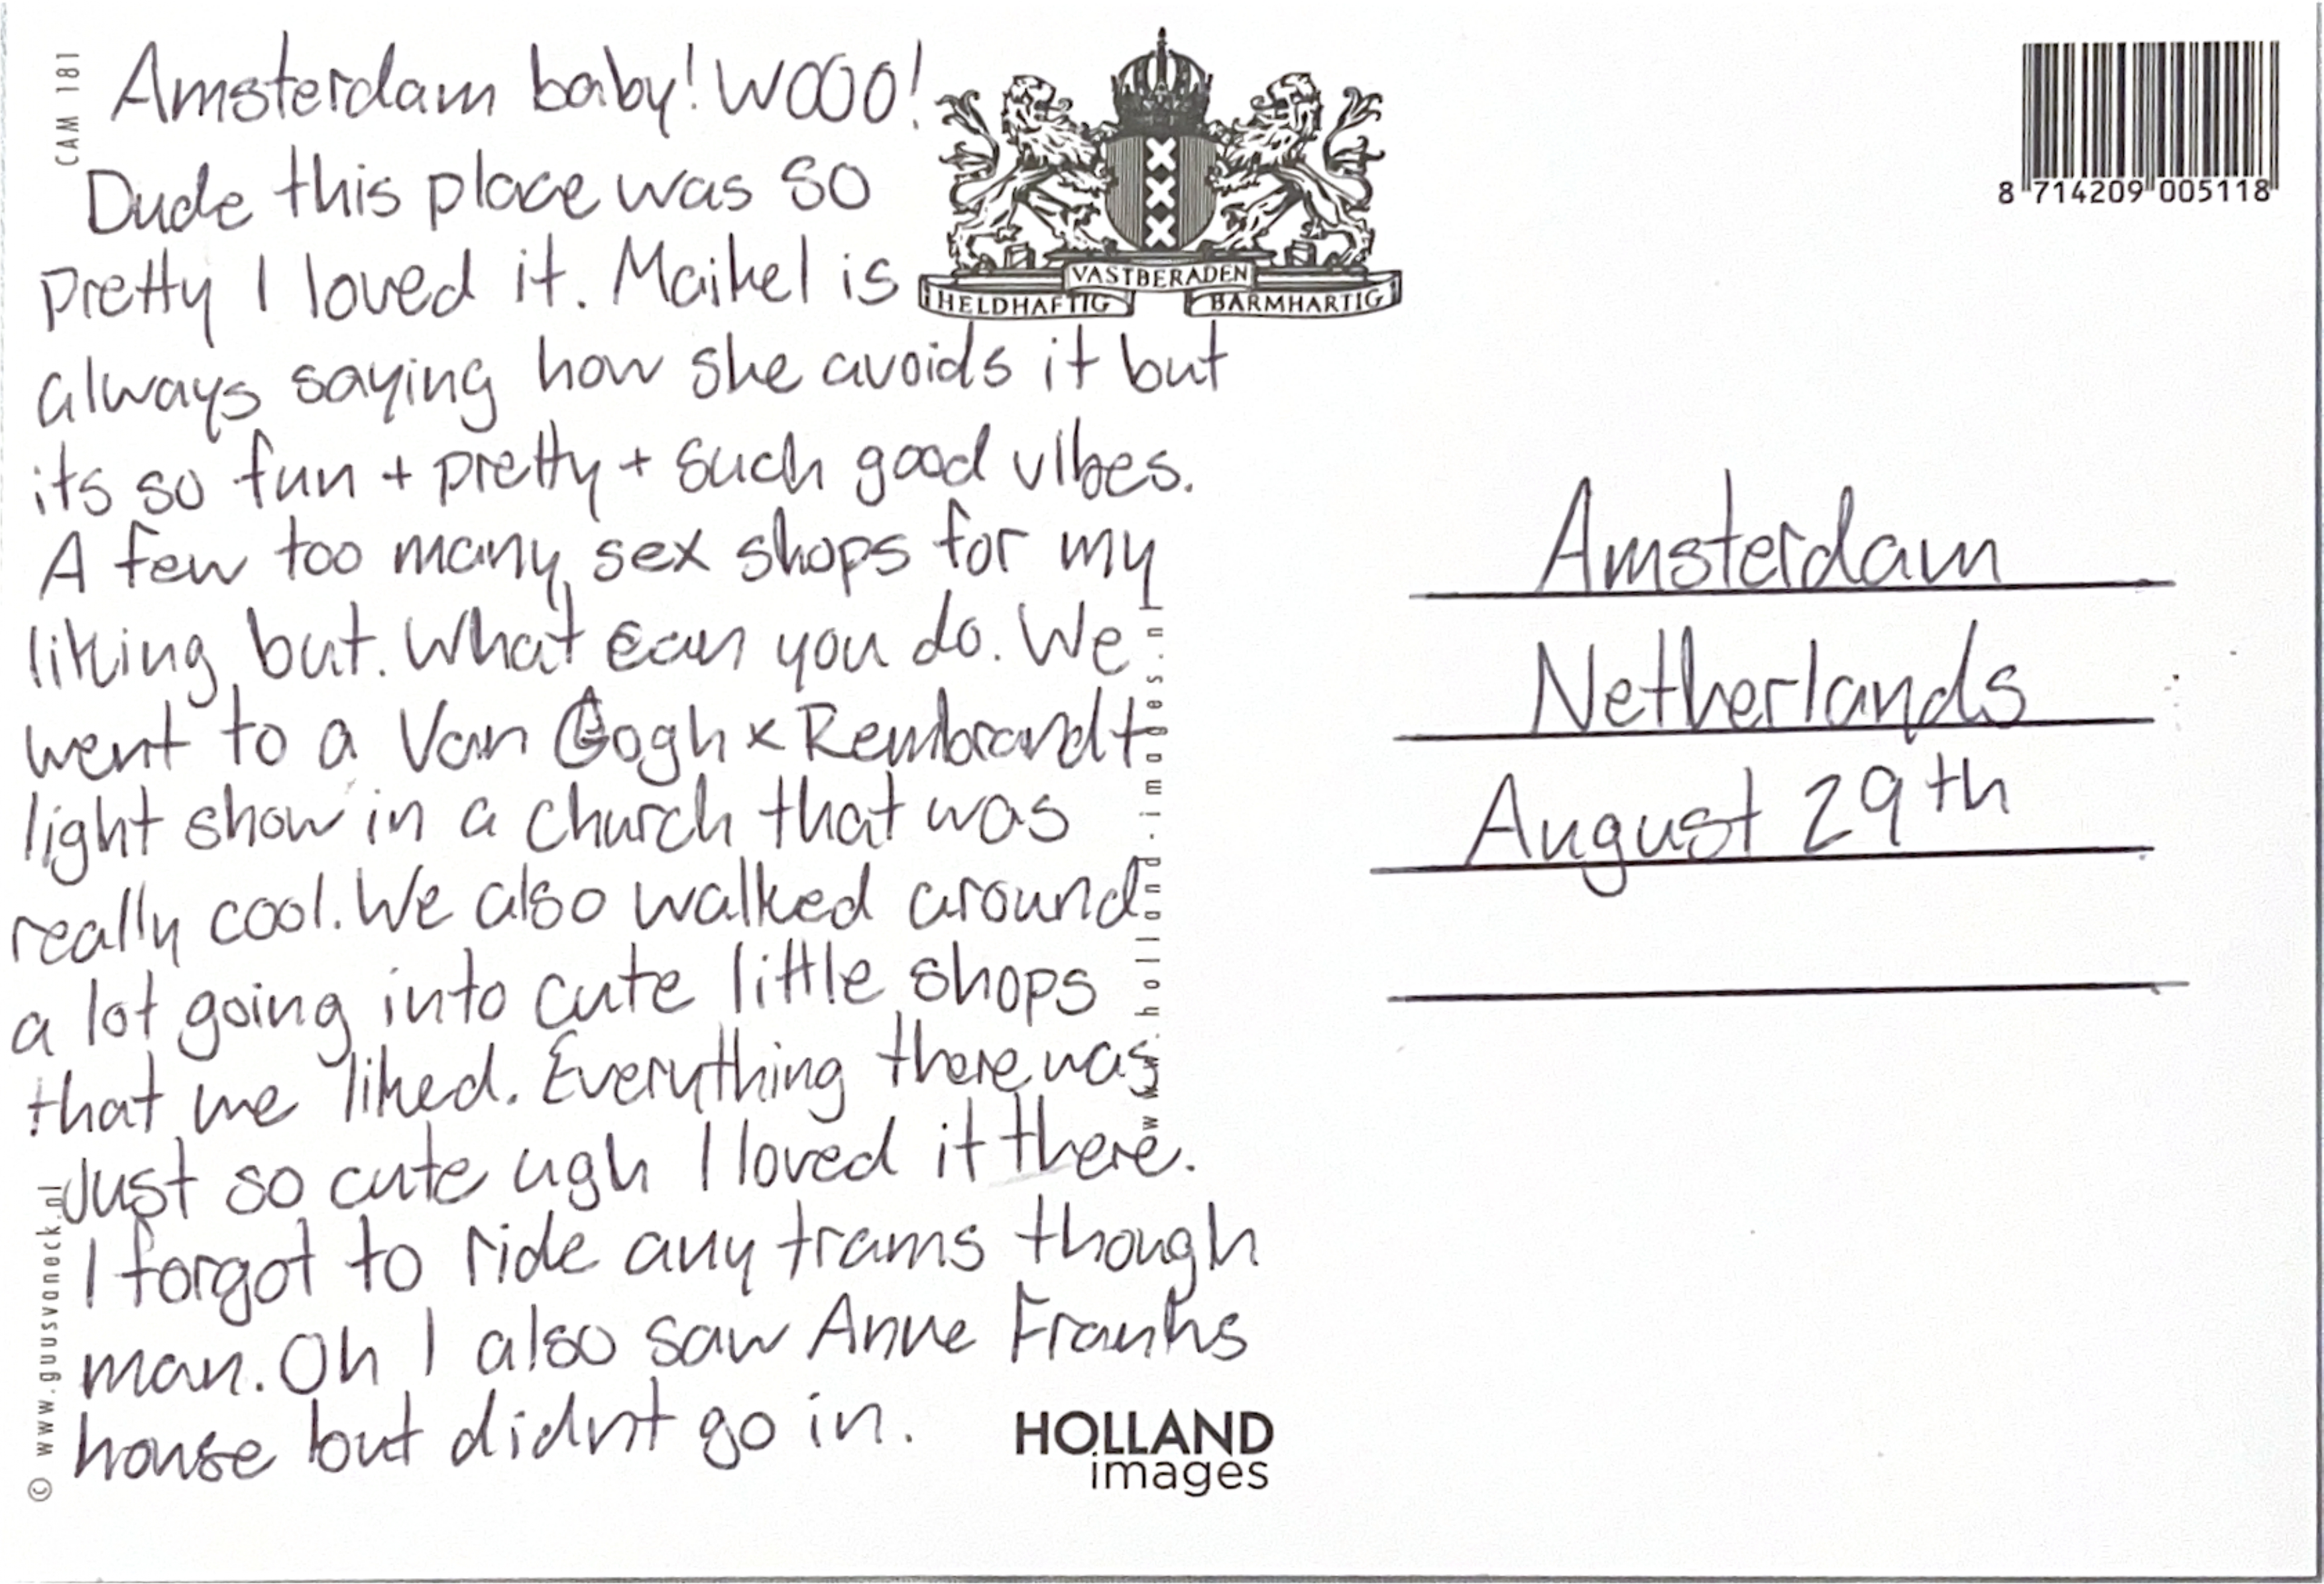 CAM 181
Amsterdam baby! WOOO!
Dude this place was so
pretty I loved it. Maikel is
always saying how she avoids it but
its so fun + pretty + such good vibes.
A few too many sex shops for my
liking but. What can you do. We
went to a Van Gogh x Rembrandt
light show in a church that was
really cool. We also walked around
a lot going into cute little shops
that we liked. Everything there was
Just so cute ugh I loved it there.
I forgot to ride any trams though
man. Oh I also saw Anne Franks
house but didnt go in.
© www.guusvaneck.nl
VASTBERADEN
HELDHAFTIG BARMHARTIG
www.holland-images.nl
HOLLAND
images
8 714209 005118
Amsterdam
Netherlands
August 29th